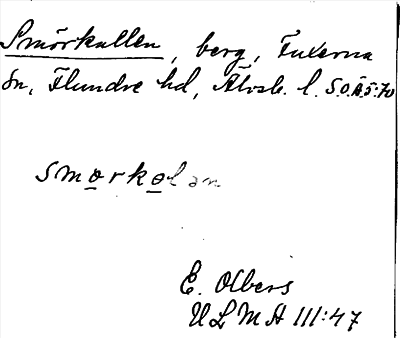 Smörkullen, berg, Fuxerna
sn, Flundre hd, Älvsb. l. S.O.Ä.5:70
smo̲rko̲lan
E. Olbers
ULMA III:47